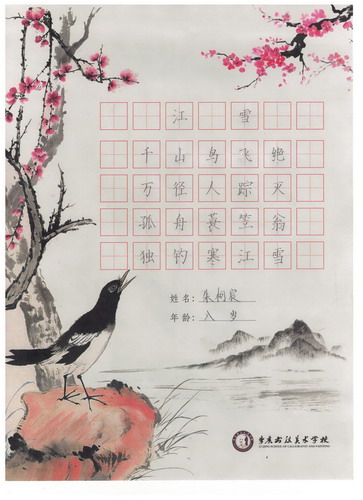 江雪
千山鸟飞绝
万径人踪灭
孤舟蓑笠翁
独钓寒江雪
姓名:朱桐宸
年龄:八 岁
书法美术学校